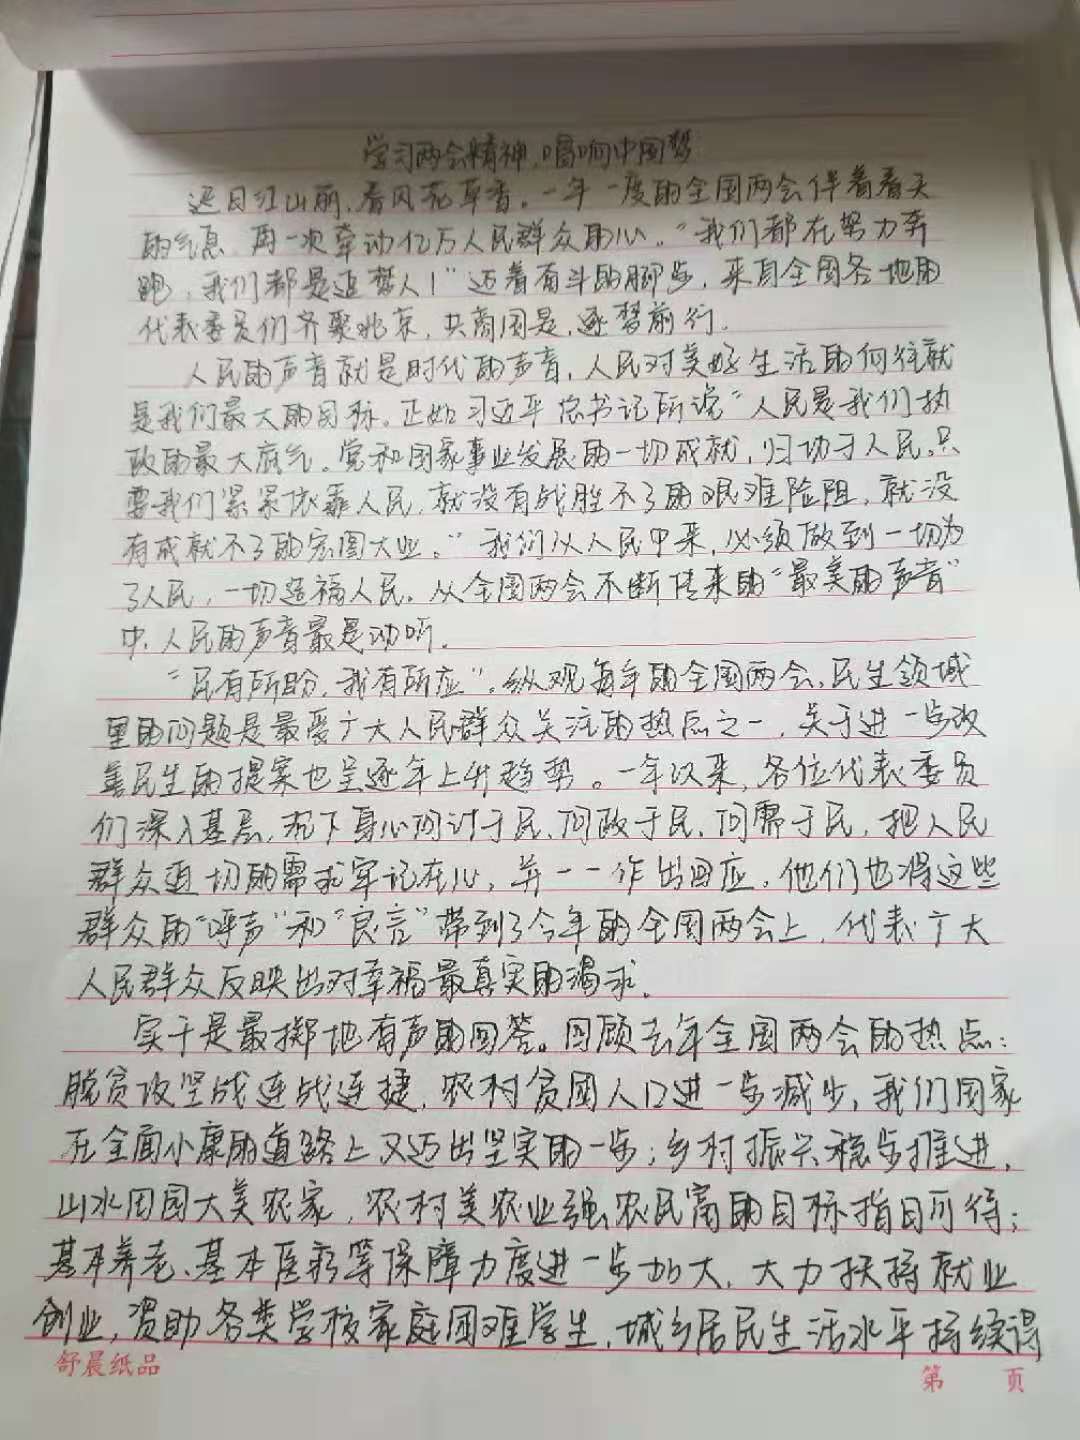 学习两会精神,唱响中国梦
迟日江山丽,春风花草香。一年一度的全国两会伴着春天
的气息,再一次牵动亿万人民群众的心。“我们都在努力奔
跑,我们都是追梦人!”迈着奋斗的脚步,来自全国各地的
代表委员们齐聚北京,共商国是,逐梦前行.
人民的声音就是时代的声音,人民对美好生活的向往就
是我们最大的目标。正如习近平总书记所说“人民是我们执
政的最大底气。党和国家事业发展的一切成就,归功于人民。只
要我们紧紧依靠人民,就没有战胜不了的艰难险阻,就没
有成就不了的宏图大业。”我们从人民中来,必须做到一切为
了人民,一切造福人民。从全国两会不断传来的“最美的声音”
中,人民的声音最是动听.
“民有所盼,我有所应”。纵观每年的全国两会,民生领域
里的问题是最受广大人民群众关注的热点之一,关于进一步改
善民生的提案也呈逐年上升趋势。一年以来,各位代表委员
们深入基层,沉下身心问计于民,问政于民,问需于民,把人民
群众迫切的需求牢记在心,并一一作出回应。他们也将这些
群众的“呼声”和“良言”带到了今年的全国两会上,代表广大
人民群众反映出对幸福最真实的渴求.
实干是最掷地有声的回答。回顾去年全国两会的热点:
脱贫攻坚战连战连捷,农村贫困人口进一步减少,我们国家
在全面小康的道路上又迈出坚实的一步;乡村振兴稳步推进,
山水田园大美农家,农村美农业强农民富的目标指日可待;
基本养老、基本医疗等保障力度进一步加大,大力扶持就业
创业,资助各类学校家庭困难学生,城乡居民生活水平持续得
舒晨纸品
第 页